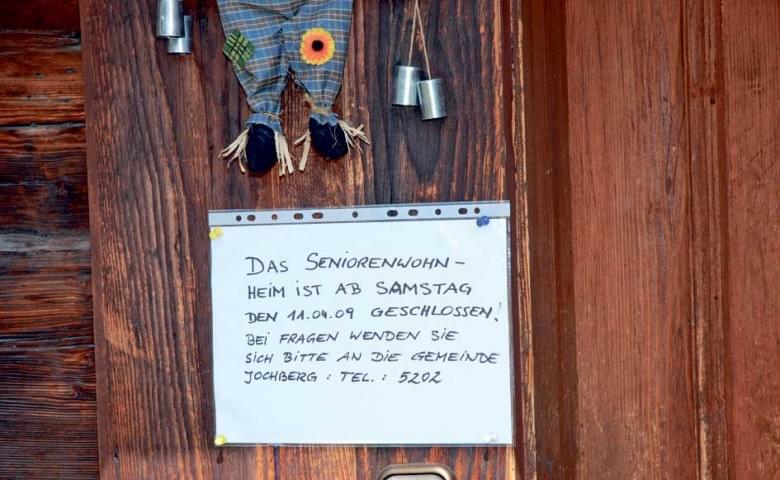 DAS SENIORENWOHN-
HEIM IST AB SAMSTAG
DEN 11.04.09 GESCHLOSSEN!
BEI FRAGEN WENDEN SIE
SICH BITTE AN DIE GEMEINDE
JOCHBERG : TEL. : 5202